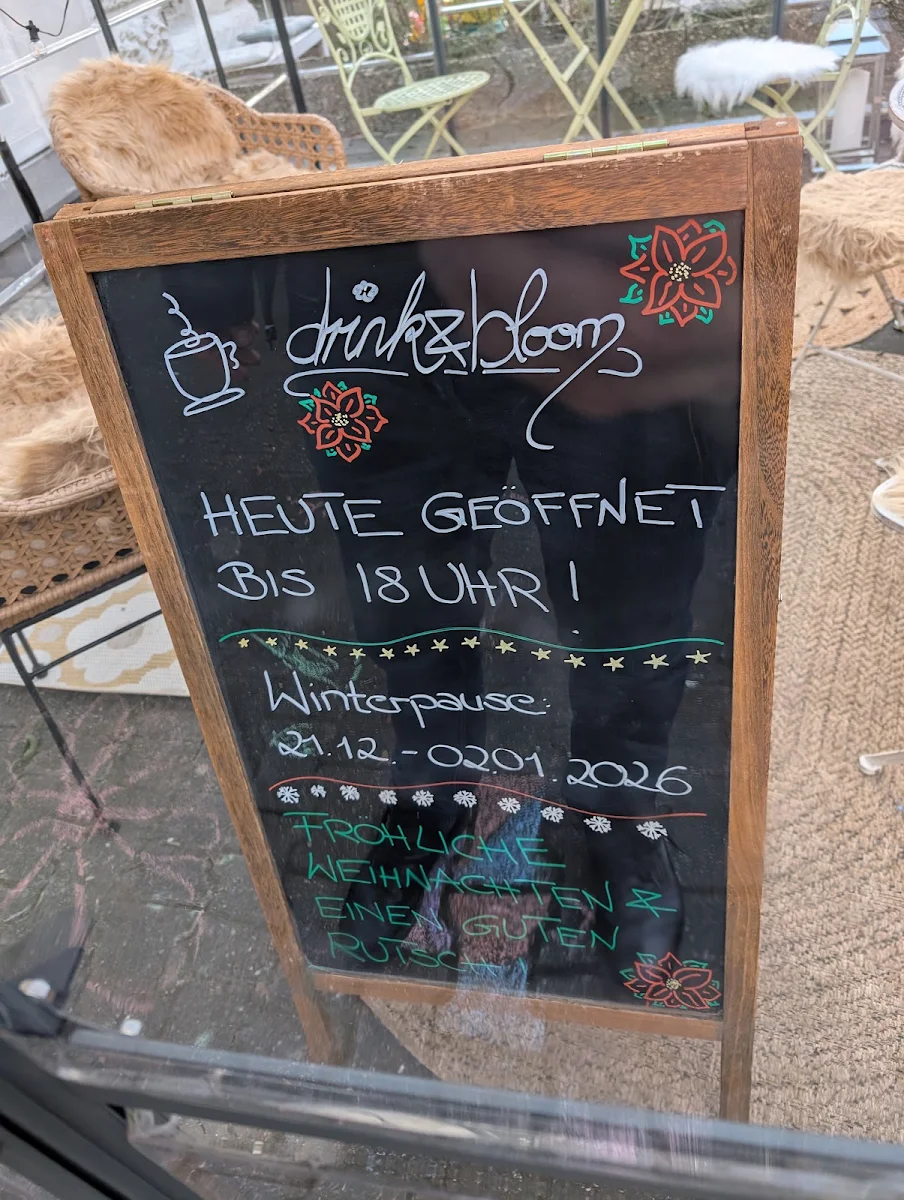 drink&bloom
HEUTE GEÖFFNET
BIS 18 UHR!
Winterpause:
21.12.-02.01.2026
FRÖHLICHE
WEIHNACHTEN &
EINEN GUTEN
RUTSCH